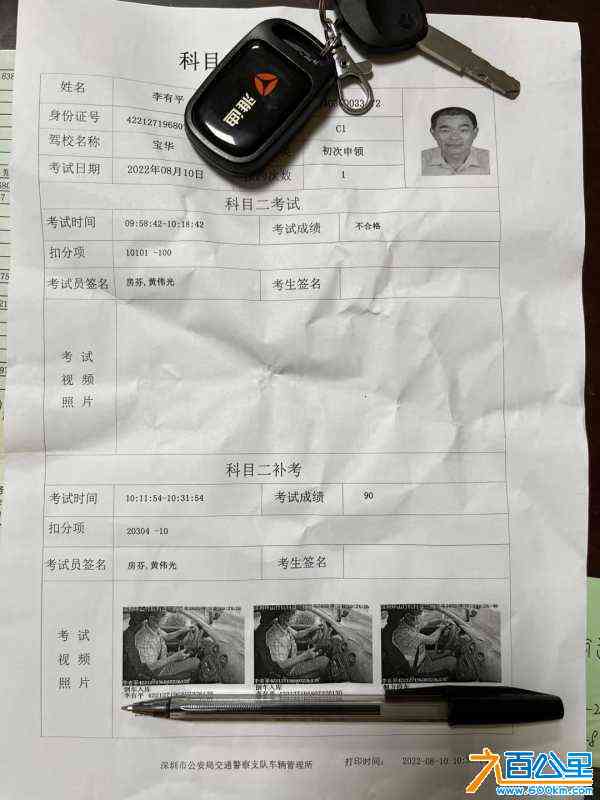 科目
姓名 李有平
身份证号 4221271968
C1
驾校名称 宝华 初次申领
考试日期 2022年08月10日 次数 1
雅迪
科目二考试
考试时间 09:58:42-10:18:42 考试成绩 不合格
扣分项 10101 -100
考试员签名 房芬,黄伟光 考生签名
考试
视频
照片
科目二补考
考试时间 10:11:54-10:31:54 考试成绩 90
扣分项 20304 -10
考试员签名 房芬,黄伟光 考生签名
考试
视频
照片
倒车入库 倒车入库
李有平
深圳市公安局交通警察支队车辆管理所 打印时间: 2022-08-10 10:
九百公里
www.900km.com